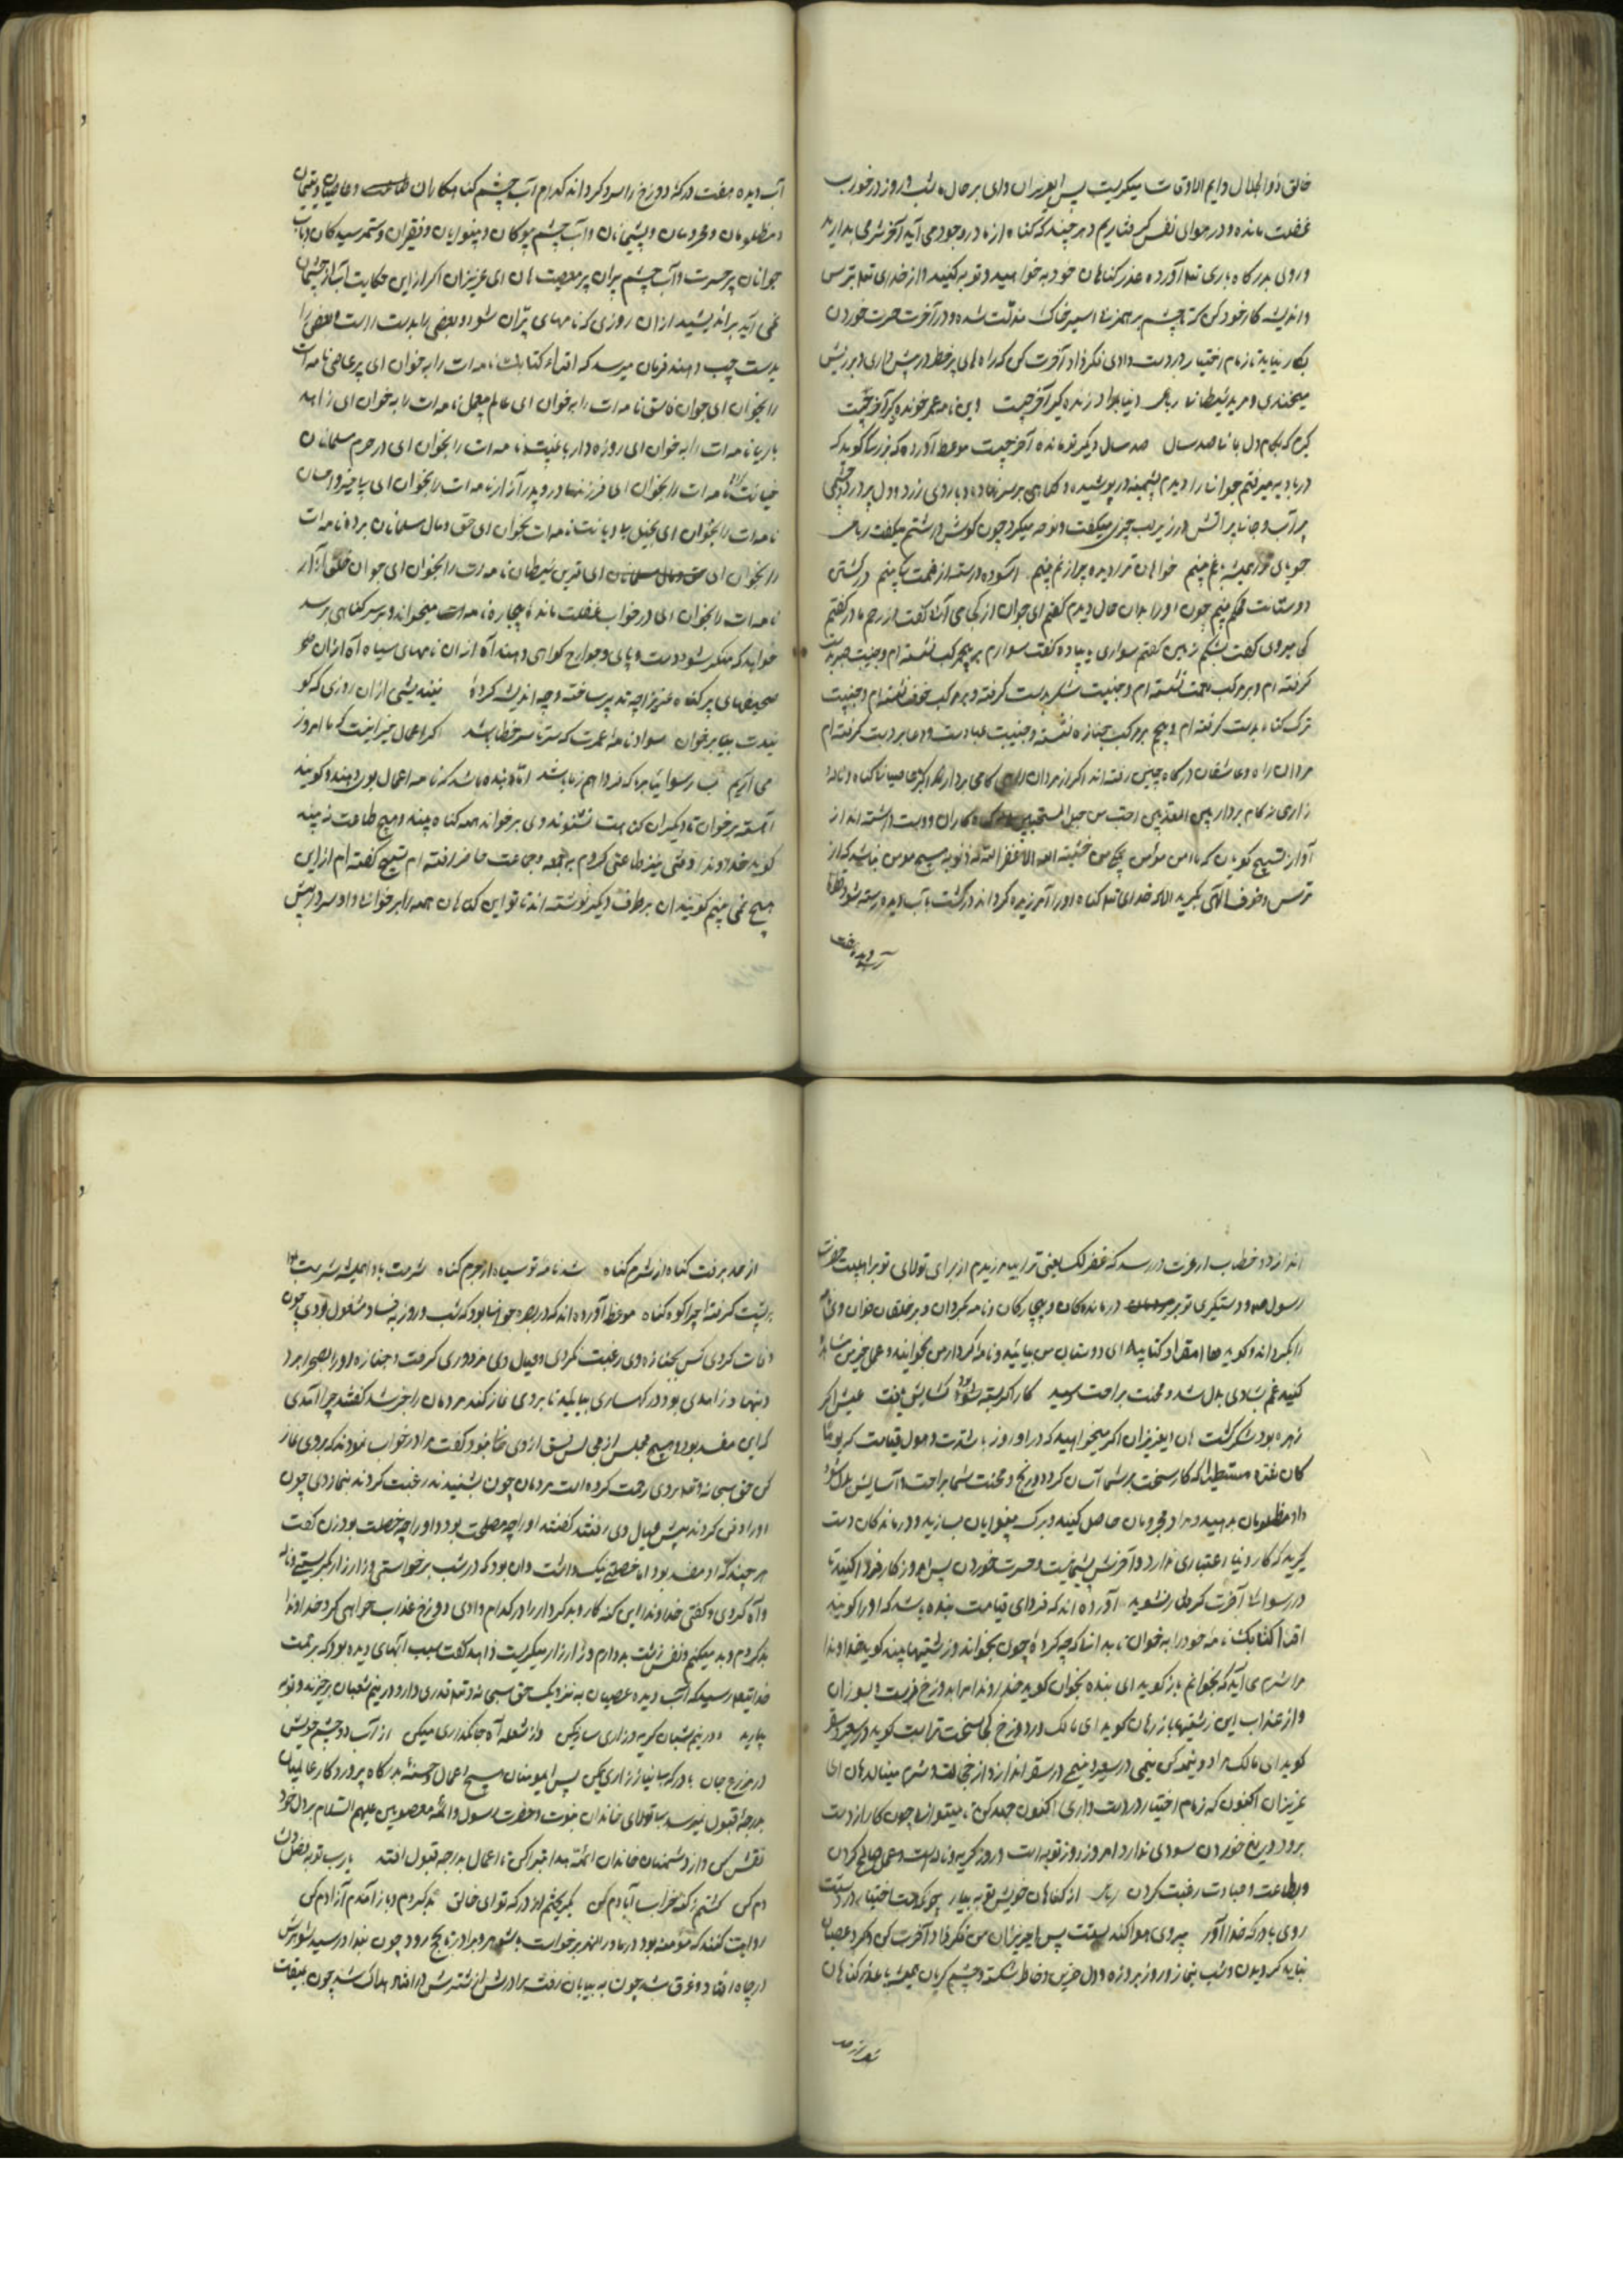 خالق ذوالجلال دایم الاوقات میکریست پس ایعزیزان وای بر حال ما شب و روز در خواب
غفلت مانده و در هوای نفس گرفتاریم و هر چند که کناه از ما در وجود می آید آخر شرمی بدارید
و روی بدرکاه باری تعالی آورده عذر کناهان خود بخواهید و توبه کنید و از خدای تعالی بترس
و اندیشه کار خود کن که تا چشم بر هم زنی اسیر خاک مذلت شده و در آخرت حسرت خوردن
بکار نیاید تا زمام اختیار در دست داری فکر زاد آخرت کن که راه های پر خطر در پیش داری و بر ریش
میخندی و مرید شیطانی رباعی دنیا بمراد رانده گیر آخر چیست وین نامه عمر خوانده گیر آخر چیست
گیرم که بکام دل بمانی صد سال صد سال دیگر بمانده آخر چیست موعظه آورده که بزرگی گوید که
در بادیه میرفتم جوانی را دیدم پشمینه در پوشیده و کلاهی بر سر نهاده با روی زرد و دل پر درد و چشمی
پر آب و جانی پر آتش و در زیر لب چیزی میگفت و نوحه میکرد چون گوش داشتم میگفت رباعی
جویای تو همیشه بغم بینم خواهان ترا دیده پر از نم بینم آسوده و رسته از غمت بینم در کشتی
دوستانت محکم بینم چون او را بدان حال دیدم گفتم ای جوان از کجا می آئی گفت از رحم مادر گفتم
کجا میروی گفت بشکم زمین گفتم سواری یا پیاده گفت سوارم بر پنج مرکب نشسته ام و جنیبت صبر بدست
گرفته ام و بر مرکب نعمت نشسته ام و جنیبت شکر بدست گرفته و بر مرکب خوف نشسته ام و جنیبت
ترک کناه بدست گرفته ام و پنجم بر مرکب جنازه نشسته و جنیبت عبادت و دعا بر دست گرفته ام
مردان راه و عاشقان درکاه چنین رفته اند اگر از مردان راهی گامی بردار
زاری ز گام بردار
آواز تسبیح گویان که
ترس و خوف الهی بگرید الا که خدای تعالی کناه او را آمرزیده گرداند
آب دیده هفت
آب دیده هفت درکه دوزخ را سرد گرداند کدام آب چشم کناهکاران و عاصیان و یتیمان
و مظلومان و محرومان و پشیمانان و آب چشم بیوکان و بینوایان و فقیران و ستمرسیدکان و تاب
جوانان پر حسرت و آب چشم پیران پر معصیت هان ای عزیزان اگر از این حکایت آب از چشمان
نمی آید براندیشید از ان روزی که نامهای پران شود و بعضی را بدست راست و بعضی را
بدست چپ دهند فرمان میرسد که اقراء کتابک نامه ات را بخوان ای پیر عاصی نامه ات
را بخوان ای جوان فاسق نامه ات را برخوان ای عالم بیعمل نامه ات را بخوان ای زاهد
با ریا نامه ات را بخوان ای روزه دار با غیبت نامه ات را بخوان ای در حرم مسلمانان
خیانت کار نامه ات را بخوان ای فرزند مادر و پدر آزار نامه ات را بخوان ای
نامه ات را بخوان ای بخیل بی دیانت نامه ات بخوان ای حق و مال مسلمانان برده نامه ات
را بخوان ای قرین شیطان نامه ات را بخوان ای جوان خلق آزار
نامه ات را بخوان ای در خواب غفلت مانده بیچاره نامه ات میخواند و بر سر کناهی برسد
خواهد که منکر شود دست و پای و جوارح گواهی دهند آه از ان نامهای سیاه آه از ان
صحیفهای پر کناه عزیزا چه تدبیر ساخته و چه اندیشه کرده نیندیشی از ان روزی که گو
یندت بیا برخوان سواد نامه عمرت که سرتاسر خطا باشد اگر اعمال خیر اینست که ما امروز
می آریم بسا رسوائیا بر ما که فردا هم ز ما باشد اما بنده باشد که نامه اعمال بوی دهند و گویند
آهسته برخوان تا دیکران کناهت نشنوند وی برخواند همه کناه بیند و هیچ طاعت نه بیند
گوید خداوندا وقتی نیز طاعتی کردم به جمعه و جماعت حاضر رفته ام تسبیح گفته ام از این
هیچ نمی بینم گویند ان بر طرف دیگر نوشته اند تا تو این کناهان همه را برخوانی و او سر در پیش
اندازد و خطاب ارفرت در رسد که غفرلک یعنی ترا بیامرزیدم از برای تولای تو بر اهلبیت حضرت
رسول و دستگیری تو بر درماندکان و بیچارکان نامه بگردان و بر خلقان خوان وی نامه
را بگرداند و گوید هاؤم اقرؤا کتابیه ای دوستان من بیائید و نامه کردار من بخوانید و عمل خیر من مشاهده
کنید غم بشادی بدل شد و محنت براحت رسید کار اگر بسته بود کشایش یافت عیش اگر
زهر بود شکر کشت هان ایعزیزان اگر میخواهید که در ان روز با شدت و هول قیامت که یوما
کان شره مستطیرا که کار سخت بر شما آسان گردد و رنج و محنت شما براحت و آسایش بدل شود
داد مظلومان بدهید و مراد محرومان حاصل کنید و برک بینوایان بسازید و درماندکان دست
گیرید که کار دنیا اعتباری ندارد و آخرتش پشیمانیست و حسرت خوردن پس امروز کار فردا کنید تا
در رسوائی آخرت گرفتار نشوید آورده اند که فردای قیامت بنده باشد که او را گویند
اقرا کتابک نامه خود را به خوان تا بدانی که چه کرده چون بخواند و زشتیها بیند گوید خداوندا
مرا شرم می آید که بخوانم باز گوید ای بنده بخوان گوید خداوندا مرا بدوزخ فرست و بسوزان
و از عذاب این زشتیها باز رهان گوید ای مالک در دوزخ کجا سخت تر است گوید در سعیر و سقر
گوید ای مالک مراد و نیمه کن نیمی در سعیر و نیمی در سقر انداز و از خجالت و شرم مینالد هان ای
عزیزان اکنون که زمام اختیار در دست داری اکنون جهد کن تا میتوانی چون کار از دست
برود دریغ خوردن سودی ندارد امروز روز توبه است و روز گریه و نداست و عمل صالح کردن
و بطاعت و عبادت رغبت کردن رباعی از کناهان خویش توبه بیار چونکه هست اختیار در دستت
روی بادرکه خدا آور پیروی هوا کند پستت پس ایعزیزان من فکر زاد آخرت کن و گرد عصیان
نباید گردیدن و شب بنماز و روز بروزه و دل حزین و خاطر شکسته و چشم گریان همیشه با عذر کناهان
از حد برفت کناه از شرم کناه شد نامه تو سیاه از جرم کناه شرمت بادا همیشه شرمت بادا
بر پشت گرفته چرا کوه کناه موعظه آورده اند که در بصره جوانی بود که شب و روز به فساد مشغول بودی چون
وفات کردی کس بجنازه وی رغبت نکردی و عیال وی مزدوری گرفت و جنازه او را بصحرا برد
و تنها و زاهدی بود در کهساری بیامد تا بر وی نماز کند مردمان را خبر شد گفتند چرا آمدی
که این مفسد بود و هیچ مجلس از فسق از وی خالی نبود گفت مرا در خواب نمودند که بر وی نماز
کن حق سبحانه و تعالی بر وی رحمت کرده است مردمان چون بشنیدند رغبت کردند بنماز وی چون
او را دفن کردند پیش عیال وی رفتند گفتند او را چه مصلحت بود و او را چه خصلت بود زن گفت
هر چند که او مفسد بود اما خصلتی نیک داشت و ان بود که در شب برخواستی و زار زار بگریستی و ناله
و آه کردی و گفتی خداوندا این کنه کار و بد کردار را در کدام وادی دوزخ عذاب خواهی کرد خداوندا
بد کردم و بد میکنم و نفس زشت بد دارم و زار زار میکریست زاهد گفت سبب ابهای دیده بود که برحمت
خدایتعالی رسید که آب دیده عصیان به نزدیک حق سبحانه و تعالی قدری دارد در نیم شبان برخیزند و توبه
بیارید در نیم شبان گریه و زاری میکن وز شعله آه جانگدازی میکن از آب دو چشم خویش
در مزرع جان با درکه بی نیاز زاری میکن پس ایمومنان هیچ اعمال حسنه بدرکاه پروردکار عالمیان
بدرجه قبول نمیرسد بی تولای خاندان نبوت و حضرت رسول و ائمه معصومین علیهم السلام بر دل خود
نقش کن و از دشمنان خاندان ائمه هدا تبرا کن تا اعمال بدرجه قبول افتد یا رب تو بفضل
دم کن کشتم ز کنه خراب آبادم کن بگریختم از درکه تو ای خالق بد کردم و باز آمدم آزادم کن
روایت کنند که مومنه بود در ماورالنهر برخواست با شوهر و برادر تا بحج رود چون بغداد رسید شوهرش
در چاه افتاد و غرق شد چون به بیابان رفت برادرش از شترش در افتاد هلاک شد چون بمیقات